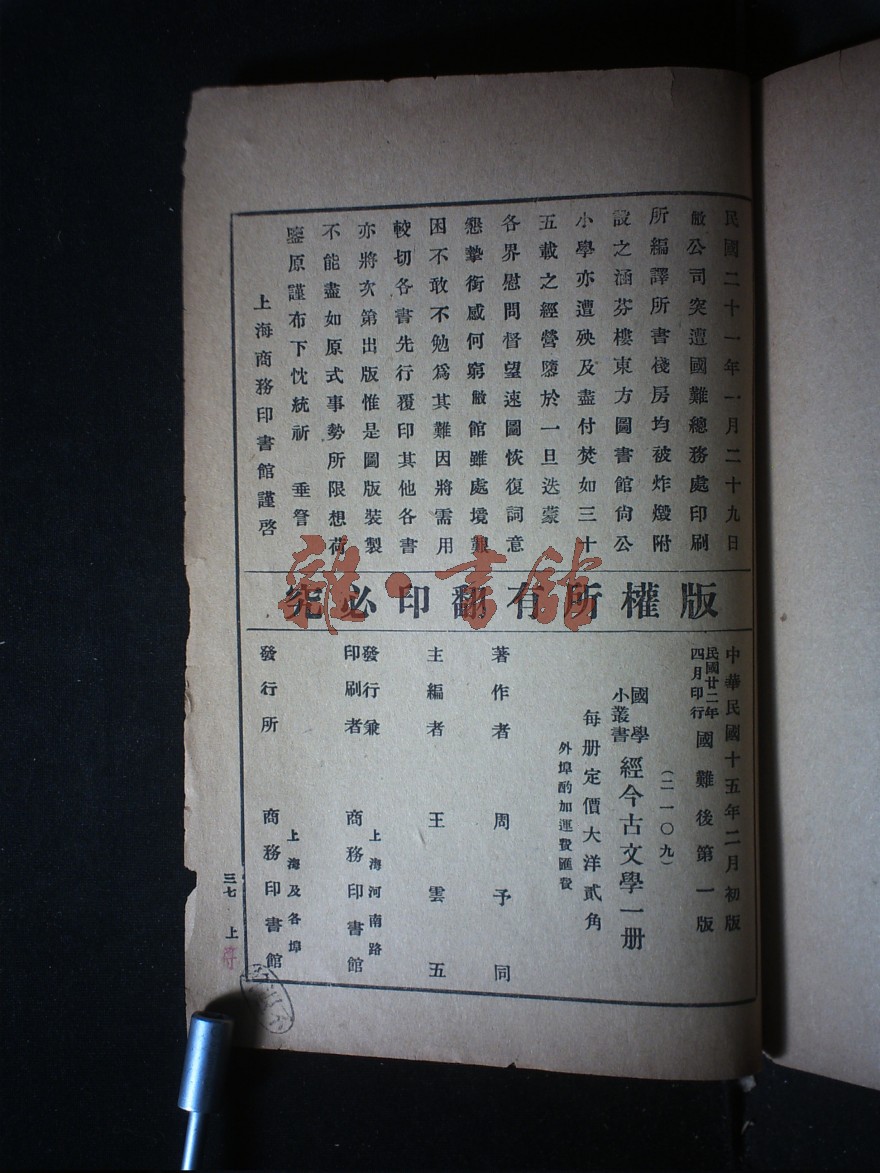 民國二十一年一月二十九日
敝公司突遭國難總務處印刷
所編譯所書棧房均被炸燬附
設之涵芬樓東方圖書館尙公
小學亦遭殃及盡付焚如三十
五載之經營隳於一旦迭蒙
各界慰問督望速圖恢復詞意
懇摯銜感何窮敝館雖處境艱
困不敢不勉爲其難因將需用
較切各書先行覆印其他各書
亦將次第出版惟是圖版裝製
不能盡如原式事勢所限想荷
鑒原謹布下忱統祈 垂詧
上海商務印書館謹啓
版權所有翻印必究
中華民國十五年二月初版
民國廿二年四月印行 國難後第一版
(二一〇九)
國學小叢書 經今古文學一册
每册定價大洋貳角
外埠酌加運費匯費
著作者 周予同
主編者 王雲五
發行兼印刷者 上海河南路 商務印書館
發行所 上海及各埠 商務印書館
三七 上
雜·書館